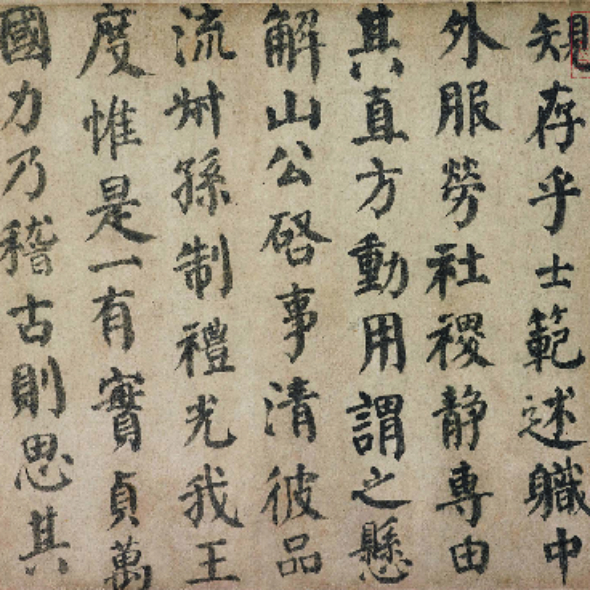 規存乎士範述職中
外服勞社稷静專由
其直方動用謂之懸
解山公啓事清彼品
流叔孫制禮光我王
度惟是一有實貞萬
國力乃稽古則思其